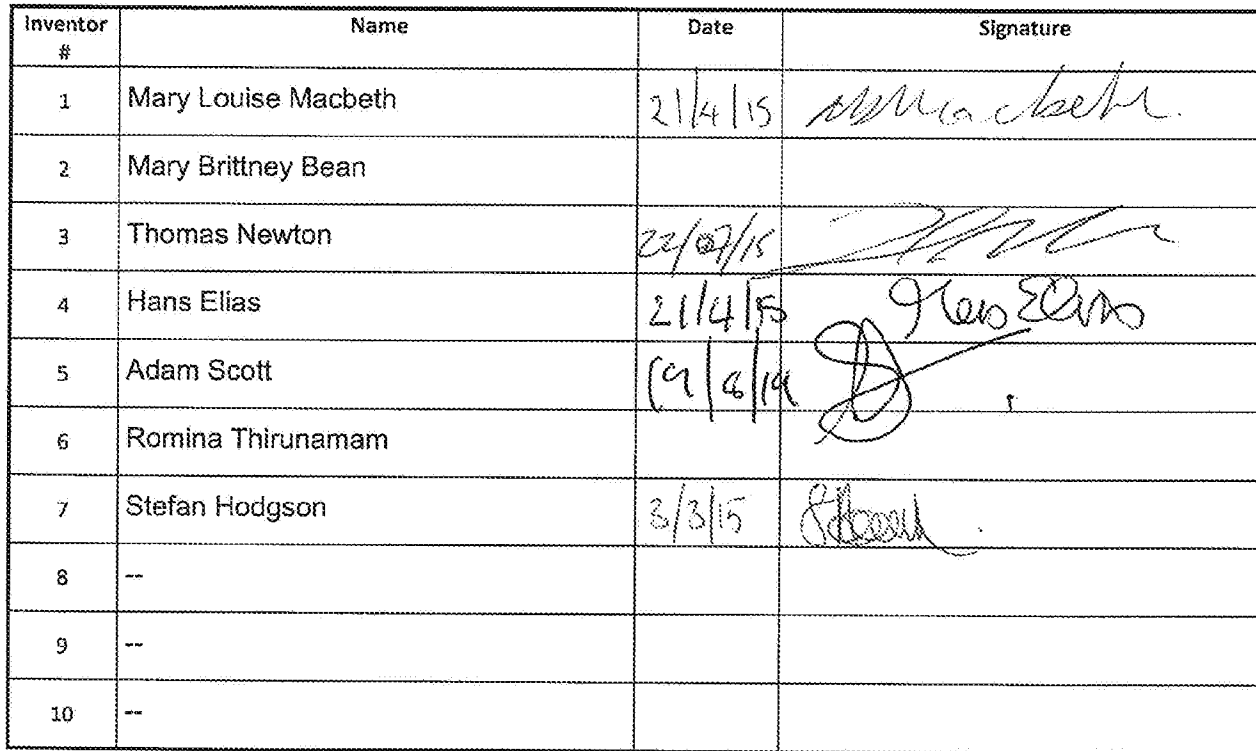 Inventor # Name Date Signature
1 Mary Louise Macbeth 21/4/15 Macbeth.
2 Mary Brittney Bean
3 Thomas Newton 22/07/15
4 Hans Elias 21/4/15 Hans Elias
5 Adam Scott 19/8/14
6 Romina Thirunamam
7 Stefan Hodgson 3/3/15
8 --
9 --
10 --